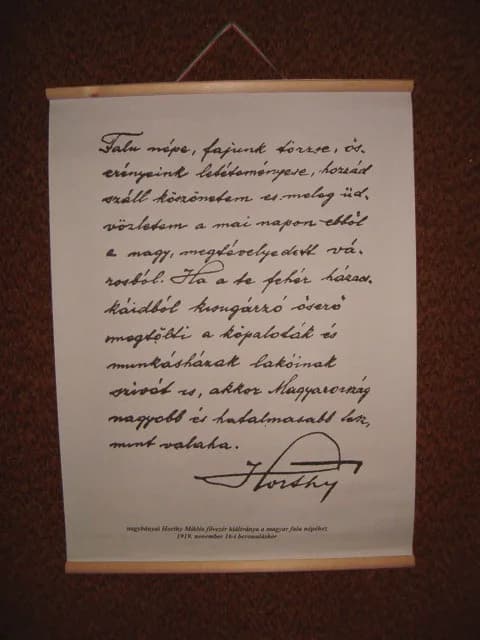 Falu népe, fajunk törzse, ős-
erényeink letéteményese, hozzád
száll köszönetem es meleg üd-
vözletem a mai napon ebből
a nagy, megtévelyedett vá-
rosból. Ha a te fehér házacs-
káidból kisugárzó őserő
megtölti a kőpaloták és
munkásházak lakóinak
szivét is, akkor Magyarország
nagyobb és hatalmasabb lesz,
mint valaha.
Horthy
nagybányai Horthy Miklós fővezér kiáltványa a magyar falu népéhez
1919. november 16-i bevonuláskor